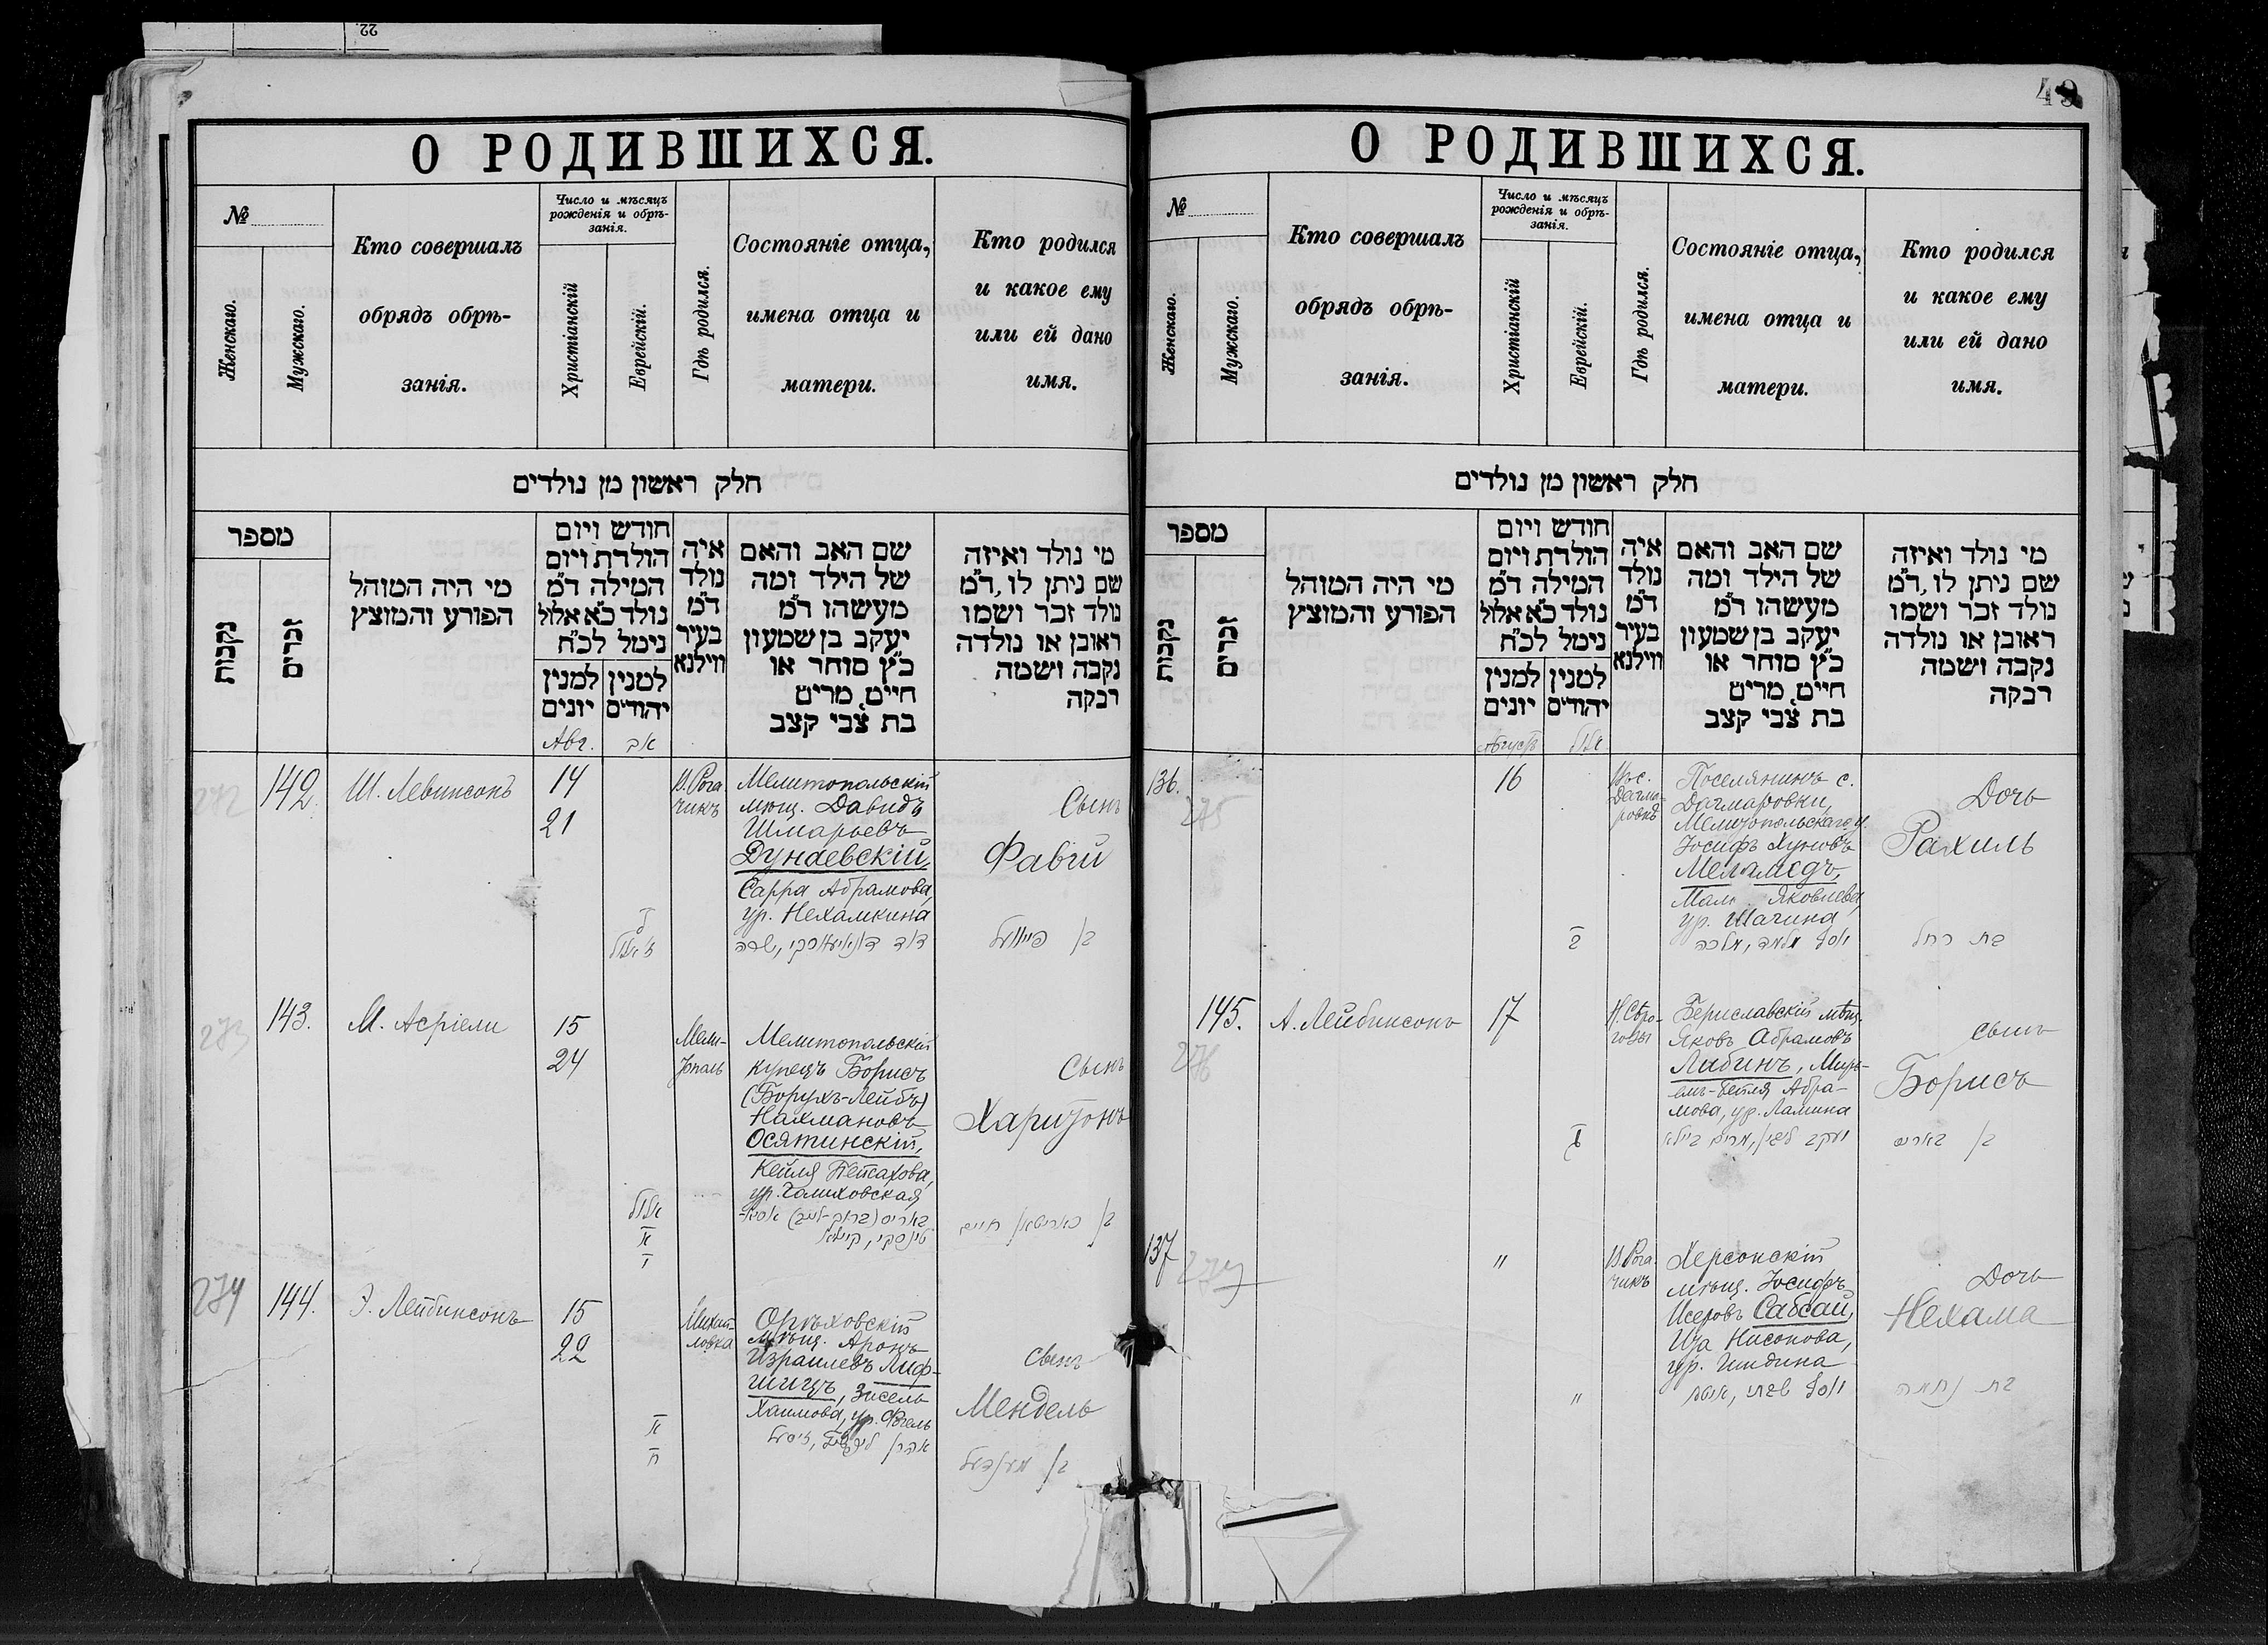 22
О РОДИВШИХСЯ.
№
Женскаго.
Мужскаго.
Кто совершалъ
обрядъ обрѣ-
занія.
Число и мѣсяцъ
рожденія и обрѣ-
занія.
Христіанскій
Еврейскій.
Гдѣ родился.
Состояніе отца,
имена отца и
матери.
Кто родился
и какое ему
или ей дано
имя.
חלק ראשון מן נולדים
מספר
נקבות
זכרים
מי היה המוהל
הפורע והמוצץ
חודש ויום
הולדת ויום
המילה ד״מ
נולד כ״א אלול
נימל לכ״ח
למנין
יונים
למנין
יהודים
איה
נולד
ד״מ
בעיר
ווילנא
שם האב והאם
של הילד ומה
מעשהו ד״מ
יעקב בן שמעון
כ״ץ סוחר או
חייט, מרים
בת צבי קצב
מי נולד ואיזה
שם ניתן לו, ד״מ
נולד זכר ושמו
ראובן או נולדה
נקבה ושמה
רבקה
Авг.
אב
272
142.
Ш. Левинсонъ
14
21
В.Рога
чикъ
Мелитопольскій
мѣщ. Давидъ
Шмарьевъ
Дунаевскій,
Сарра Абрамова,
ур. Нехамкина
דוד דונאיעווסקי, שרה
Сынъ
Фавій
בן פייוועל
273
143.
М. Асріели
15
24
אלול
א
י
Мели-
тополь
Мелитопольскій
купецъ Борисъ
(Борухъ-Лейбъ)
Нахмановъ
Осятинскій,
Кейля Пейсахова,
ур. Галиховская
Сынъ
Харитонъ
274
144.
Э. Лейбинсонъ
15
22
א
ח
Михай-
ловка
Орѣховскій
мѣщ. Аронъ
Израилевъ Лиф-
шицъ, Зисель
Хаимова, ур. Фогель
אהרן ליפשיץ, זיסעל
Сынъ
Мендель
בן מענדעל
49
О РОДИВШИХСЯ.
№
Женскаго.
Мужскаго.
Кто совершалъ
обрядъ обрѣ-
занія.
Число и мѣсяцъ
рожденія и обрѣ-
занія.
Христіанскій
Еврейскій.
Гдѣ родился.
Состояніе отца,
имена отца и
матери.
Кто родился
и какое ему
или ей дано
имя.
חלק ראשון מן נולדים
מספר
נקבות
זכרים
מי היה המוהל
הפורע והמוצץ
חודש ויום
הולדת ויום
המילה ד״מ
נולד כ״א אלול
נימל לכ״ח
למנין
יונים
למנין
יהודים
איה
נולד
ד״מ
בעיר
ווילנא
שם האב והאם
של הילד ומה
מעשהו ד״מ
יעקב בן שמעון
כ״ץ סוחר או
חייט, מרים
בת צבי קצב
מי נולד ואיזה
שם ניתן לו, ד״מ
נולד זכר ושמו
ראובן או נולדה
נקבה ושמה
רבקה
Августъ
אלול
136.
275
16
ב
Въ с.
Дагма-
ровкѣ
Поселянинъ с.
Дагмаровки,
Мелитопольскаго у.
Іосифъ
Меламедъ,
Яковлева,
ур. Шагина
יוסף מלמד, מלכה
Дочь
Рахиль
בת רחל
145.
276
А. Лейбинсонъ
17
Н.Сѣро-
гозы
Бериславскій мѣщ.
Яковъ Абрамовъ
Либинъ, Мирь-
емъ-Бейля Абра-
мова, ур. Ламина
יעקב ליבין, מרים ביילא
Сынъ
Борисъ
בן באריס
137
277
"
В.Рога
чикъ
Херсонскій
мѣщ. Іосифъ
Исеровъ Сабсай,
Нисонова,
ур. Гиндина
"
Дочь
Нехама
בת נחמה